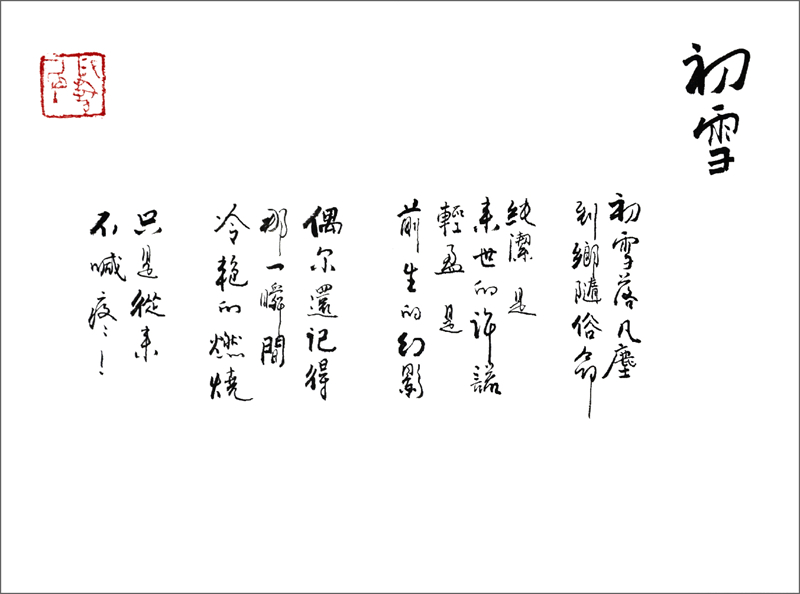 初雪
初雪落凡塵
到鄉隨俗命
純潔 是
來世的許諾
輕盈 是
前生的幻影
偶尔還記得
那一瞬間
冷艷的燃燒
只是從來
不喊疼！